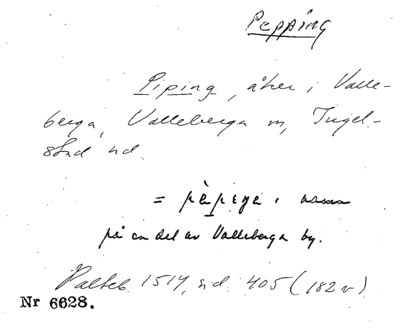 Pepping
Piping, åker i Valle-
berga, Valleberga sn, Ingel-
stad hd.
= pèpeŋe, namn
på en del av Valleberga by.
Palteb. 1514, sid. 405 (182 v)
Nr 6628.